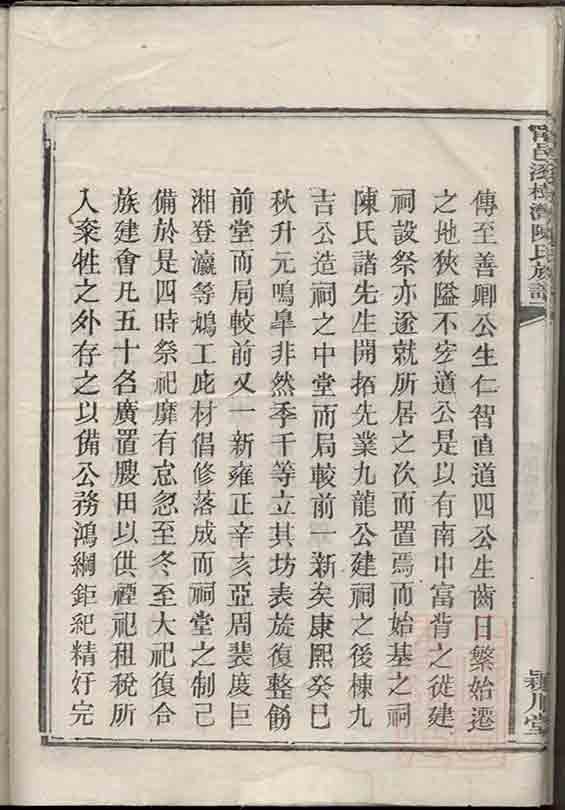 邑漆樹灣陳氏族譜
潁川堂
傳至善卿公生仁智直道四公生齒日繁始遷
之地狹隘不宏道公是以有南中富背之從建
祠設祭亦遂就所居之次而置焉而始基之祠
陳氏諸先生開拓先業九龍公建祠之後棟九
吉公造祠之中堂而局較前一新矣康熙癸巳
秋升元鳴臯非然季千等立其坊表旋復整餙
前堂而局較前又一新雍正辛亥亞周裴度巨
湘登瀛等鳩工庀材倡修落成而祠堂之制己
備於是四時祭祀靡有怠忽至冬至大祀復合
族建會凡五十名廣置腴田以供禋祀租稅所
入粢牲之外存之以備公務鴻綱鉅紀精好完